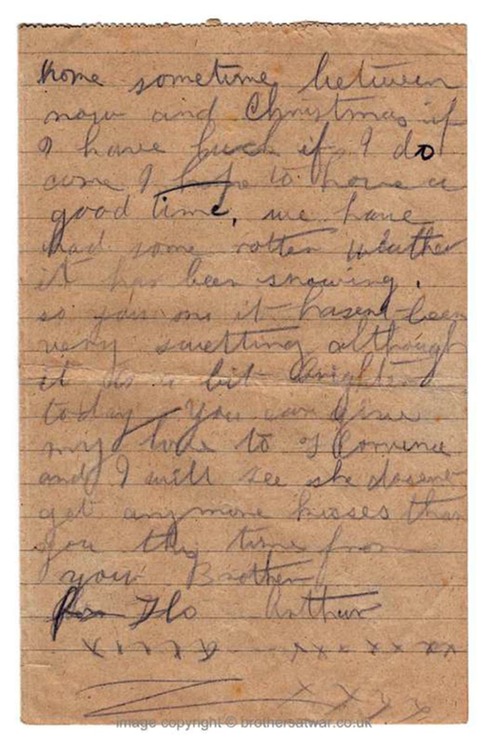 home sometime between
now and Christmas if
I have luck if I do
come I hope to have a
good time, we have
had some rotten weather
it has been snowing.
so far it hasent been
very although
it is a bit
today You can give
my love to Florence
and I will see she dosent
get anymore kisses than
you this time from
your Brother
Flo Arthur
image copyright © brothersatwar.co.uk